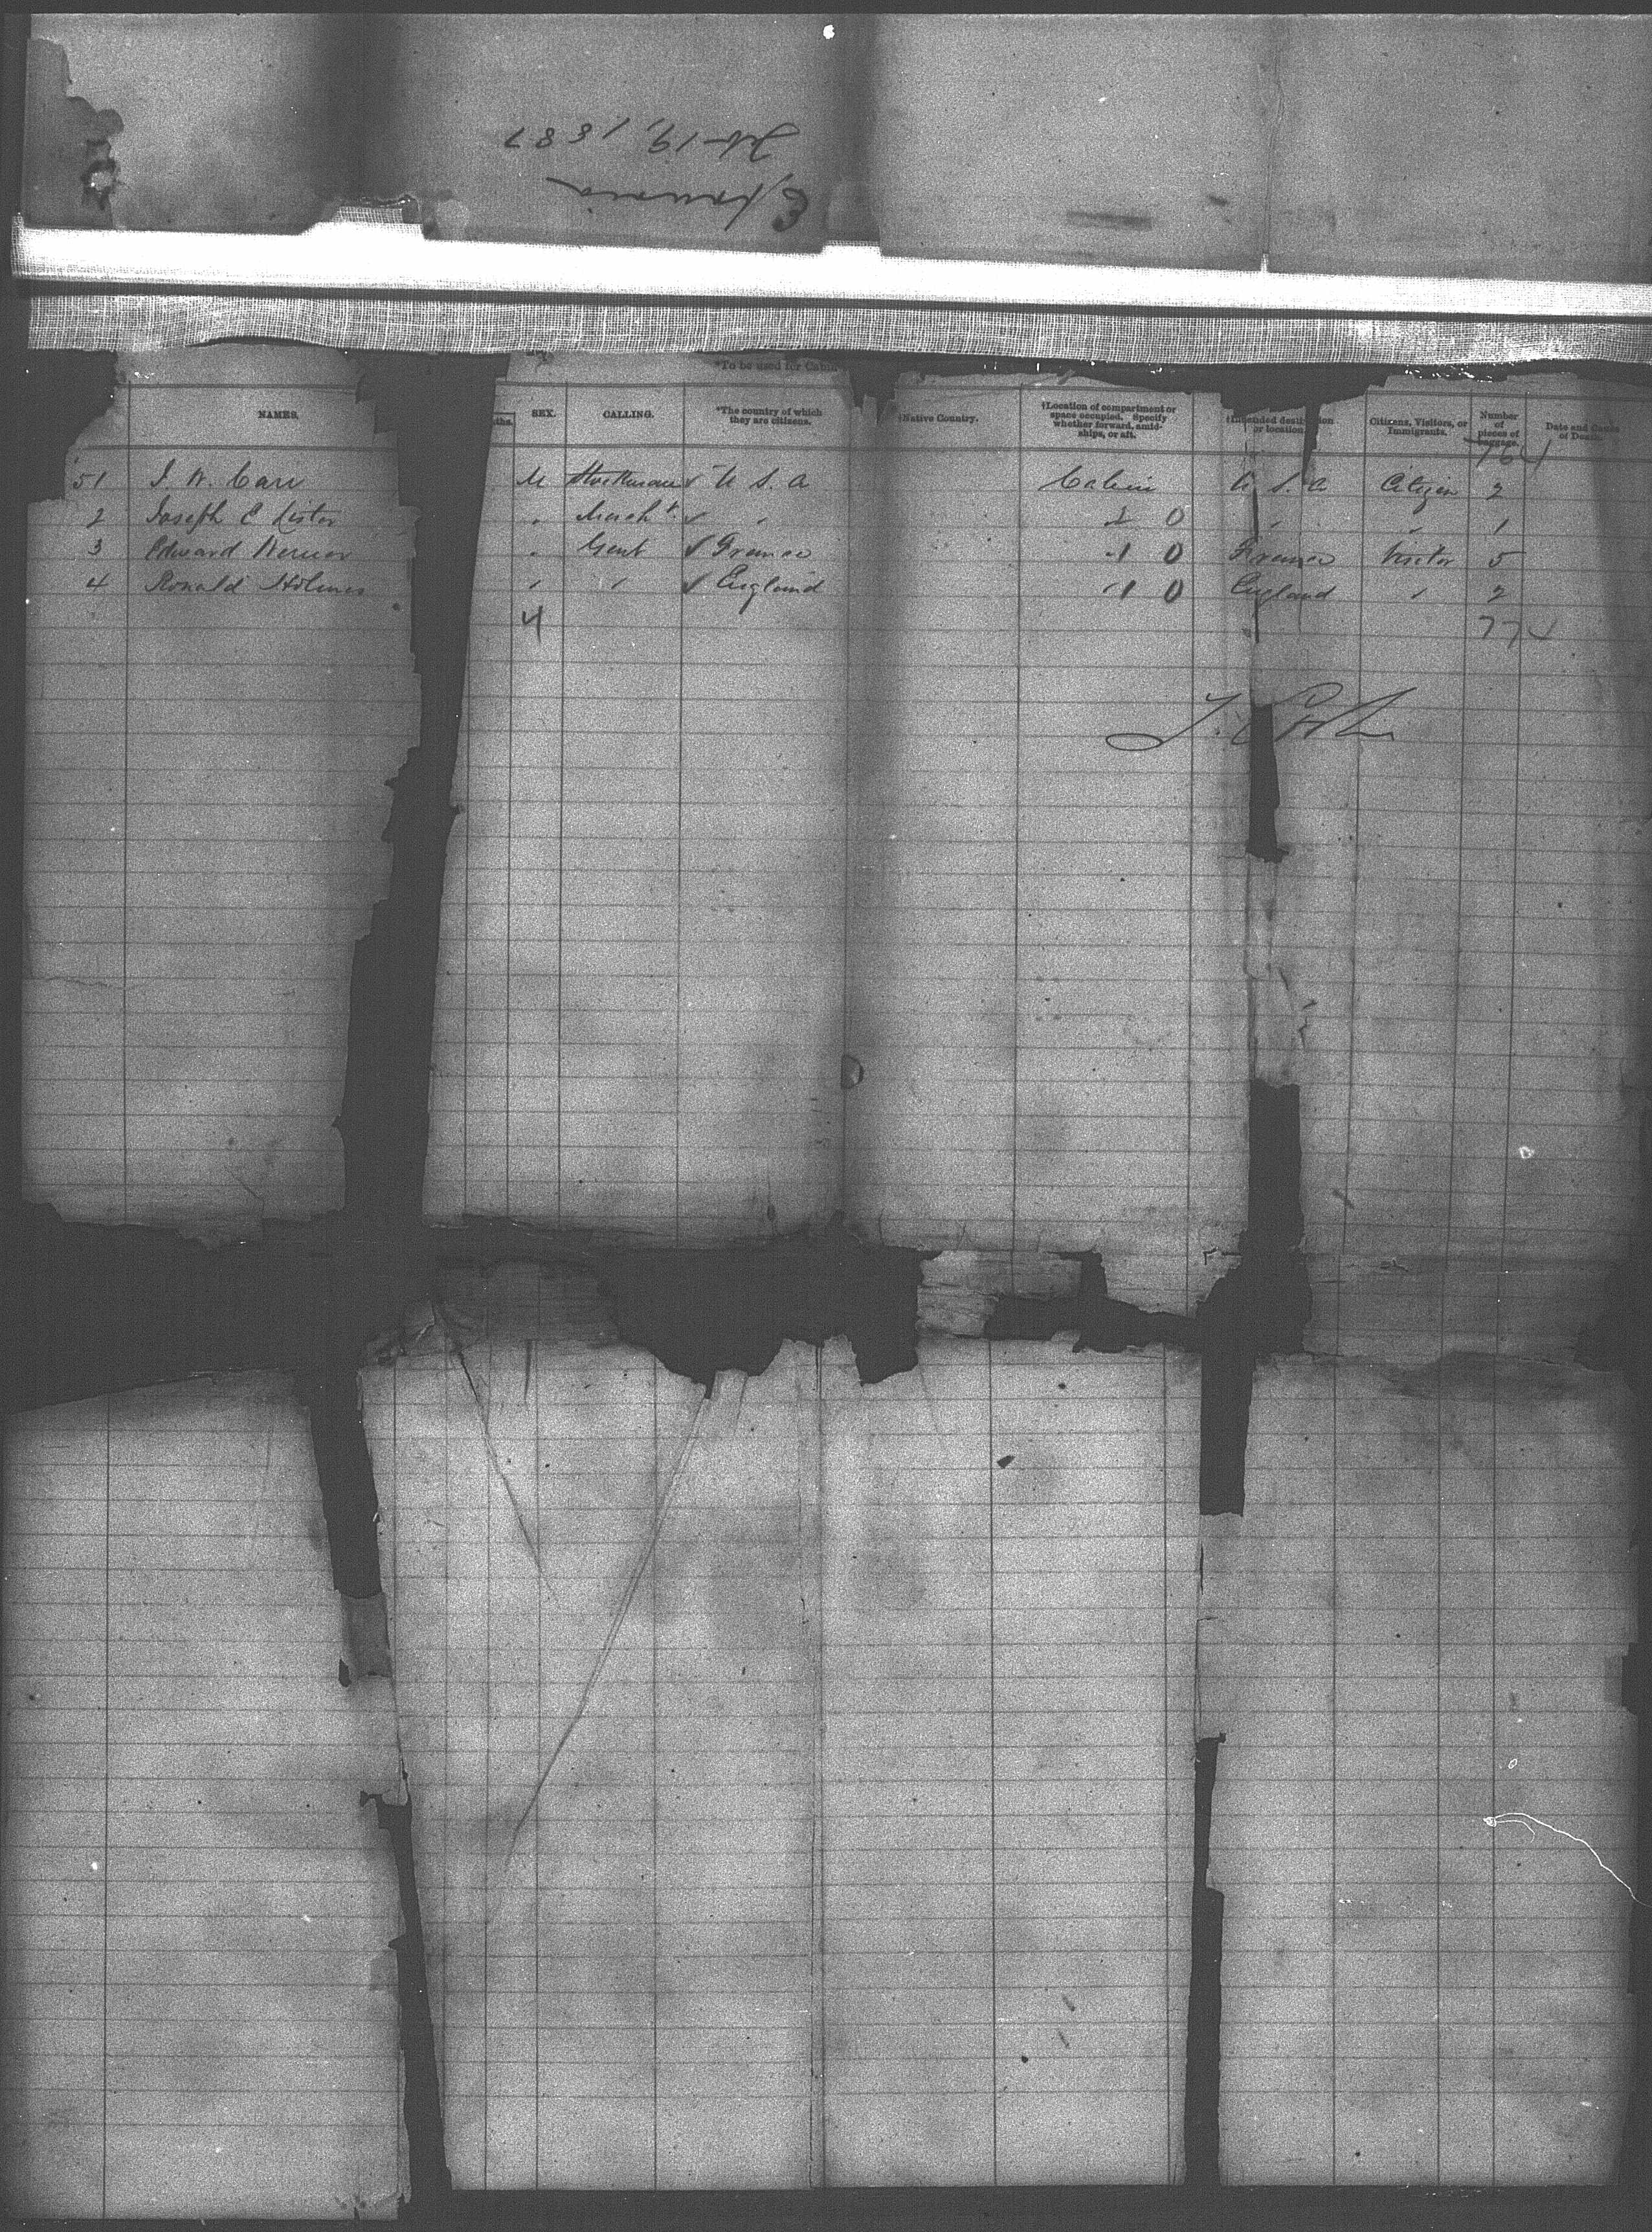 Feb 19, 1887
*To be used for Cabin
NAMES.
ths.
SEX.
CALLING.
*The country of which they are citizens.
†Native Country.
†Location of compartment or space occupied. Specify whether forward, amidships, or aft.
†Intended destination or location.
Citizens, Visitors, or Immigrants.
Number of pieces of baggage.
Date and Cause of Death.
764
51 J. W. Carr M ✓ U S. A Cabin U S. A Citizen 2
2 Joseph C Lister " Mercht. ✓ " 1 0 " " 1
3 Edward Werner " Gent ✓ France 1 0 France Visitor 5
4 Ronald Holmes " " ✓ England 1 0 England " 2
4 774